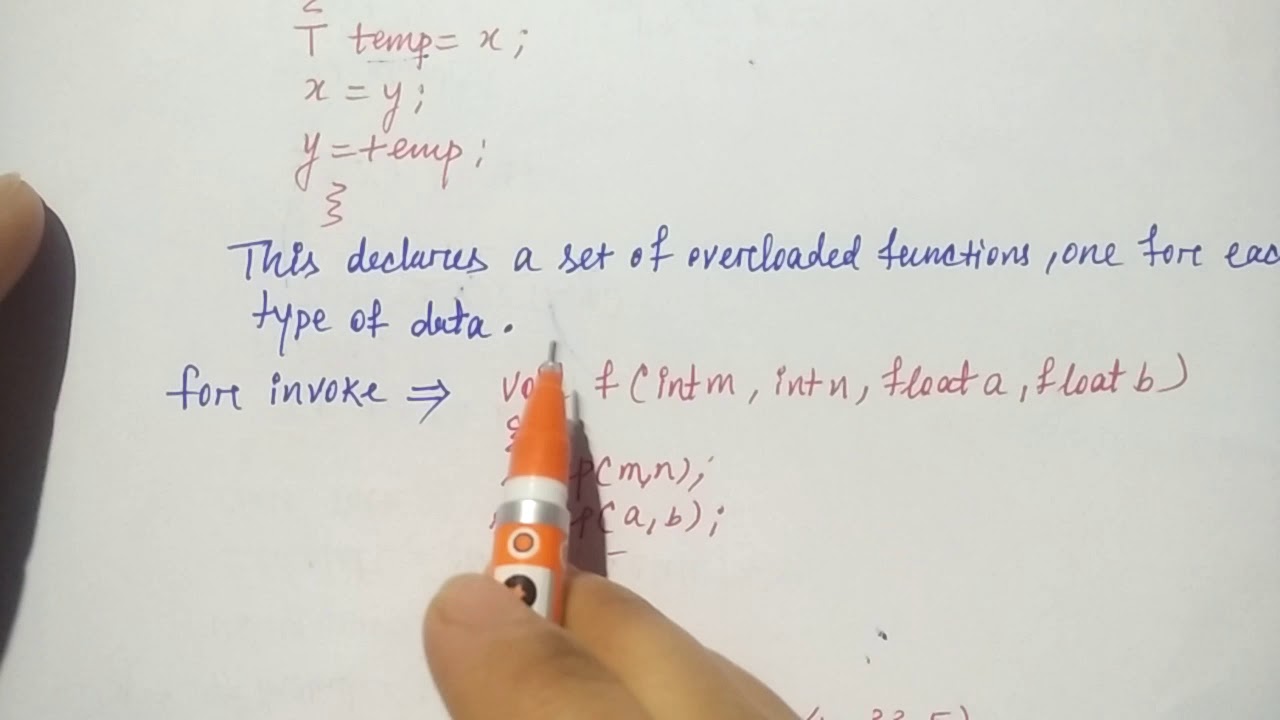 {
T temp= x;
x = y;
y=temp;
}
This declares a set of overloaded functions, one fore eac
type of data.
fore invoke ⇒ f(int m, int n, float a, float b)
{
p(m,n);
p(a,b);